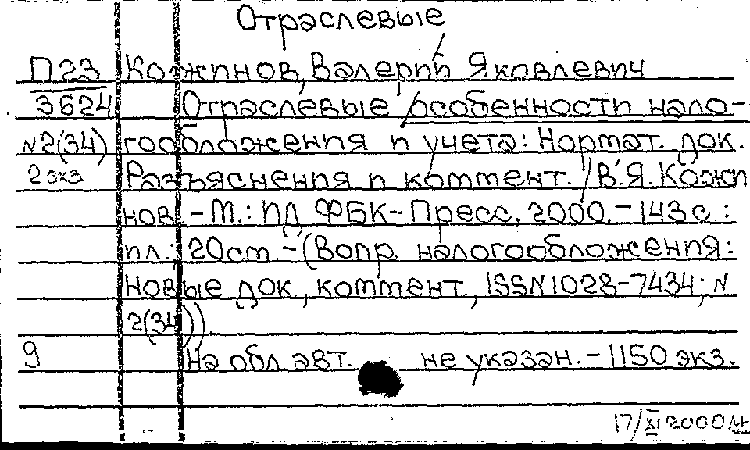 Отраслевые
П23 Кожинов, Валерий Яковлевич
3624 Отраслевые особенности нало-
N2(34) гообложения и учета: Нормат. док.
2 экз Разъяснения и коммент. / В.Я. Кожи
нов. - М.: ИД ФБК-Пресс, 2000. - 143с.:
ил.; 20см - (Вопр. налогообложения:
новые док, коммент, ISSN1028-7434; N
2(34)).
9 На обл авт. не указан. - 1150 экз.
17/XI 2000